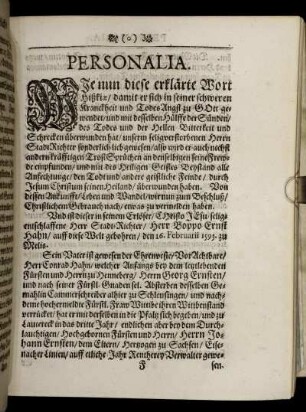 (o)
PERSONALIA.
WJe nun diese erklärte Wort
Hißkiæ/ damit er sich in seiner schweren
Kranckheit und Todes Angst zu GOtt ge-
wendet/ und mit desselben Hülffe der Sünden/
des Todes und der Hellen Bitterkeit und
Schrecken überwunden hat/ unserm selig verstorbenen Herrn
StadtRichter sonderlich lieb gewesen/ also wird er auch nechst
andern kräfftigen Trost Sprüchen an denselbigen seine Freu-
de empfunden/ und mit des Heiligen Geistes Beystand alle
Anfechtung/ den Tod und andere geistliche Feinde/ durch
Jesum Christum seinen Heiland/ überwunden haben. Von
dessen Ankunfft/ Leben und Wandel/ wir nun zum Beschluß/
Christlichem Gebrauch nach/ etwas zu vermelden haben.
Und ist dieser in seinem Erlöser/ CHristo JEsu/ selig
entschlaffene Herr Stadt-Richter/ Herr Boppo Ernst
Hahn/ auff diese Welt gebohren/ den 26. Februarii 1595. zu
Meis-
Sein Vater ist gewesen der Ehrnveste/ Vor Achtbare/
Herr Conrad Hahn/ welcher Anfangs bey dem letztlebenden
Fürsten und Herrn zu Henneberg/ Herrn Georg Ernsten/
und nach seiner Fürstl. Gnaden sel. Absterben desselben Ge-
mahlin Cammerschreiber alhier zu Schleusingen/ und nach-
deme hochermeldte Fürstl. Frau Witwe ihren Witbenstand
verrücket/ hat er mit derselben in die Pfaltz sich begeben/ und zu
Lautereck in das dritte Jahr/ endlichen aber bey dem Durch-
lauchtigen/ Hochgebornen Fürsten und Herrn/ Herrn Jo-
hann Ernsten/ dem Eltern/ Hertzogen zu Sachsen/ Eise-
nacher Linien/ auff etliche Jahr Rentherey Verwalter gewe-
F sen.